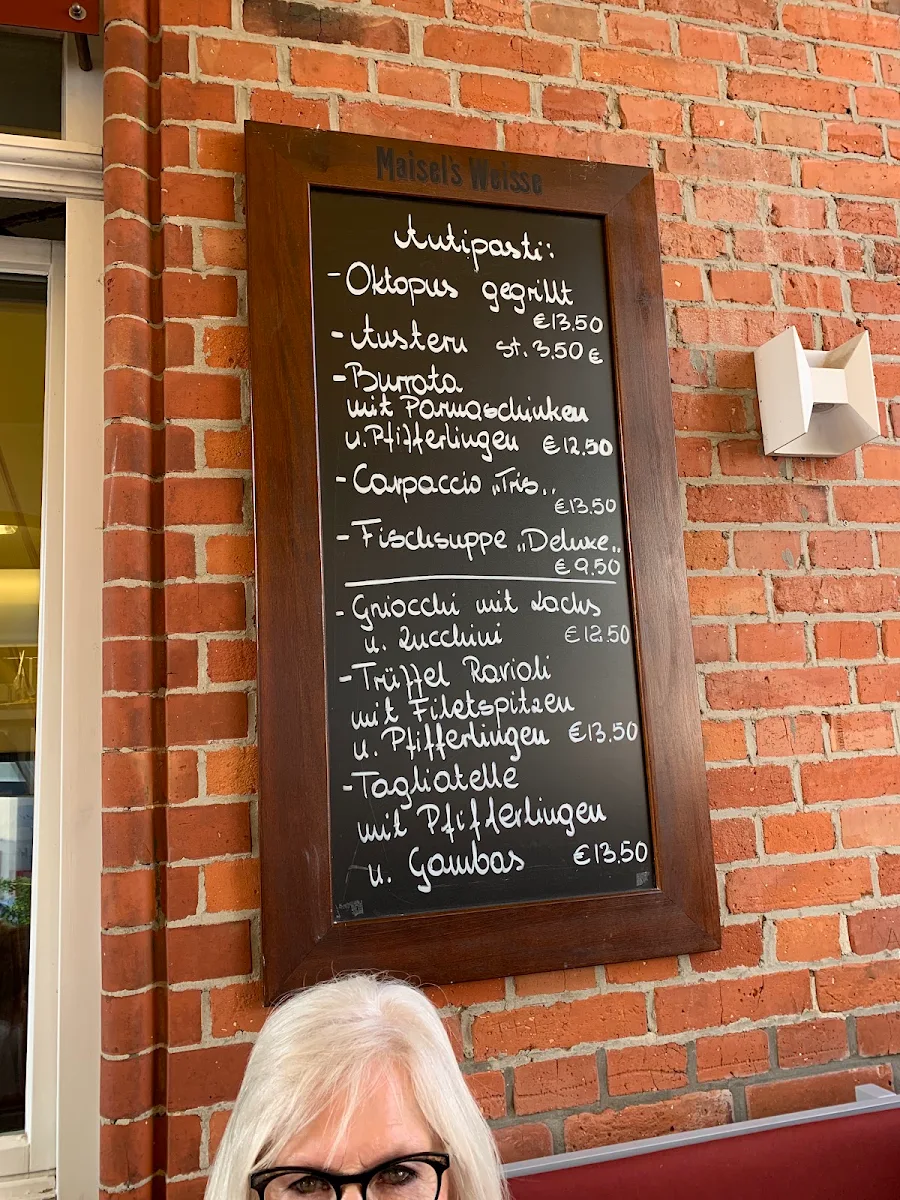 Maisel's Weisse
Antipasti:
- Oktopus gegrillt
€13.50
- Austern st. 3.50 €
- Burrata
mit Parmaschinken
u. Pfifferlingen €12.50
- Carpaccio „Tris„
€13.50
- Fischsuppe „Deluxe„
€ 9.50
- Gniocchi mit Lachs
u. Zucchini €12.50
- Trüffel Ravioli
mit Filetspitzen
u. Pfifferlingen €13.50
- Tagliatelle
mit Pfifferlingen
u. Gambas €13.50